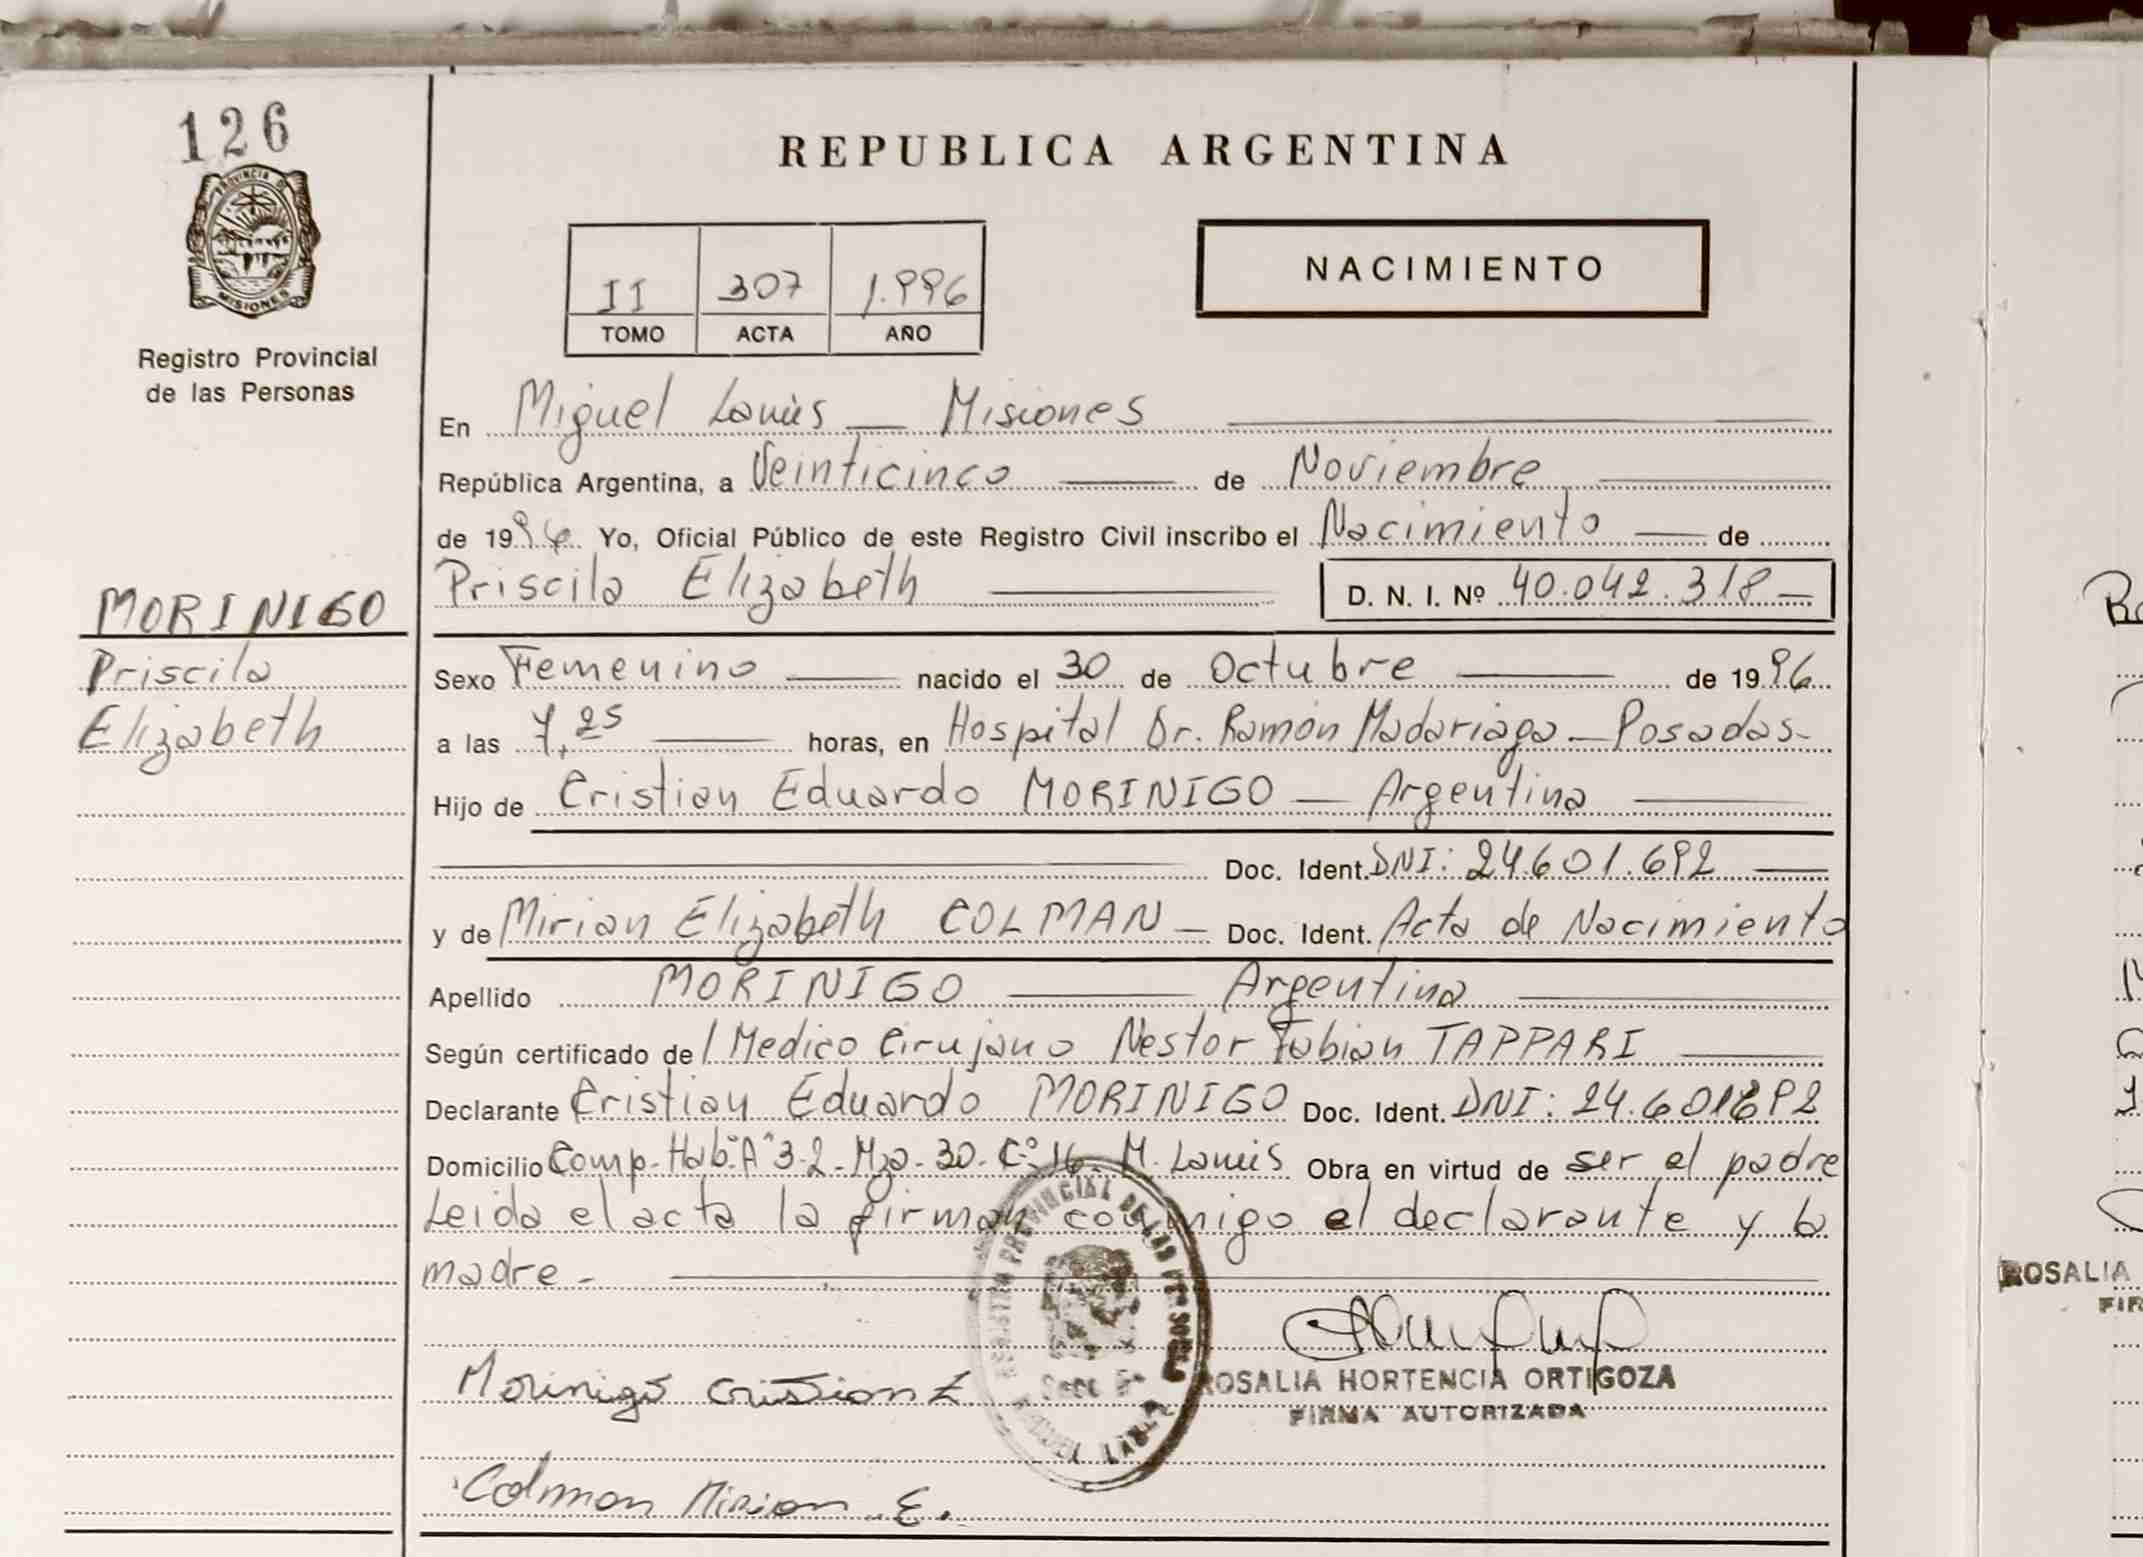 126
PROVINCIA DE
MISIONES
Registro Provincial
de las Personas
MORINIGO
Priscila
Elizabeth
REPUBLICA ARGENTINA
II 307 1.996
TOMO ACTA AÑO
NACIMIENTO
En Miguel Lanús — Misiones
República Argentina, a Veinticinco — de Noviembre
de 1996 Yo, Oficial Público de este Registro Civil inscribo el Nacimiento — de
Priscila Elizabeth — D. N. I. Nº 40.042.318 —
Sexo Femenino — nacido el 30 de Octubre — de 1996
a las 7,25 — horas, en Hospital Dr. Ramón Madariaga — Posadas-
Hijo de Cristian Eduardo MORINIGO — Argentina —
Doc. Ident. DNI: 24.601.692 —
y de Mirian Elizabeth COLMAN — Doc. Ident. Acta de Nacimiento
Apellido MORINIGO — Argentina —
Según certificado de / Medico Cirujano Nestor Fabian TAPPARI —
Declarante Cristian Eduardo MORINIGO Doc. Ident. DNI: 24.601692
Domicilio Comp. Hab. "A" 3-2 - Mza. 30 - Cº 16 - M. Lanús Obra en virtud de ser el padre
Leida el acta la firman conmigo el declarante y la
madre -
REGISTRO PROVINCIAL DE LAS PERSONAS
MIGUEL LANUS
ROSALIA HORTENCIA ORTIGOZA
FIRMA AUTORIZADA
Morinigo Cristian E
Colman Mirian E.
ROSALIA
FIR